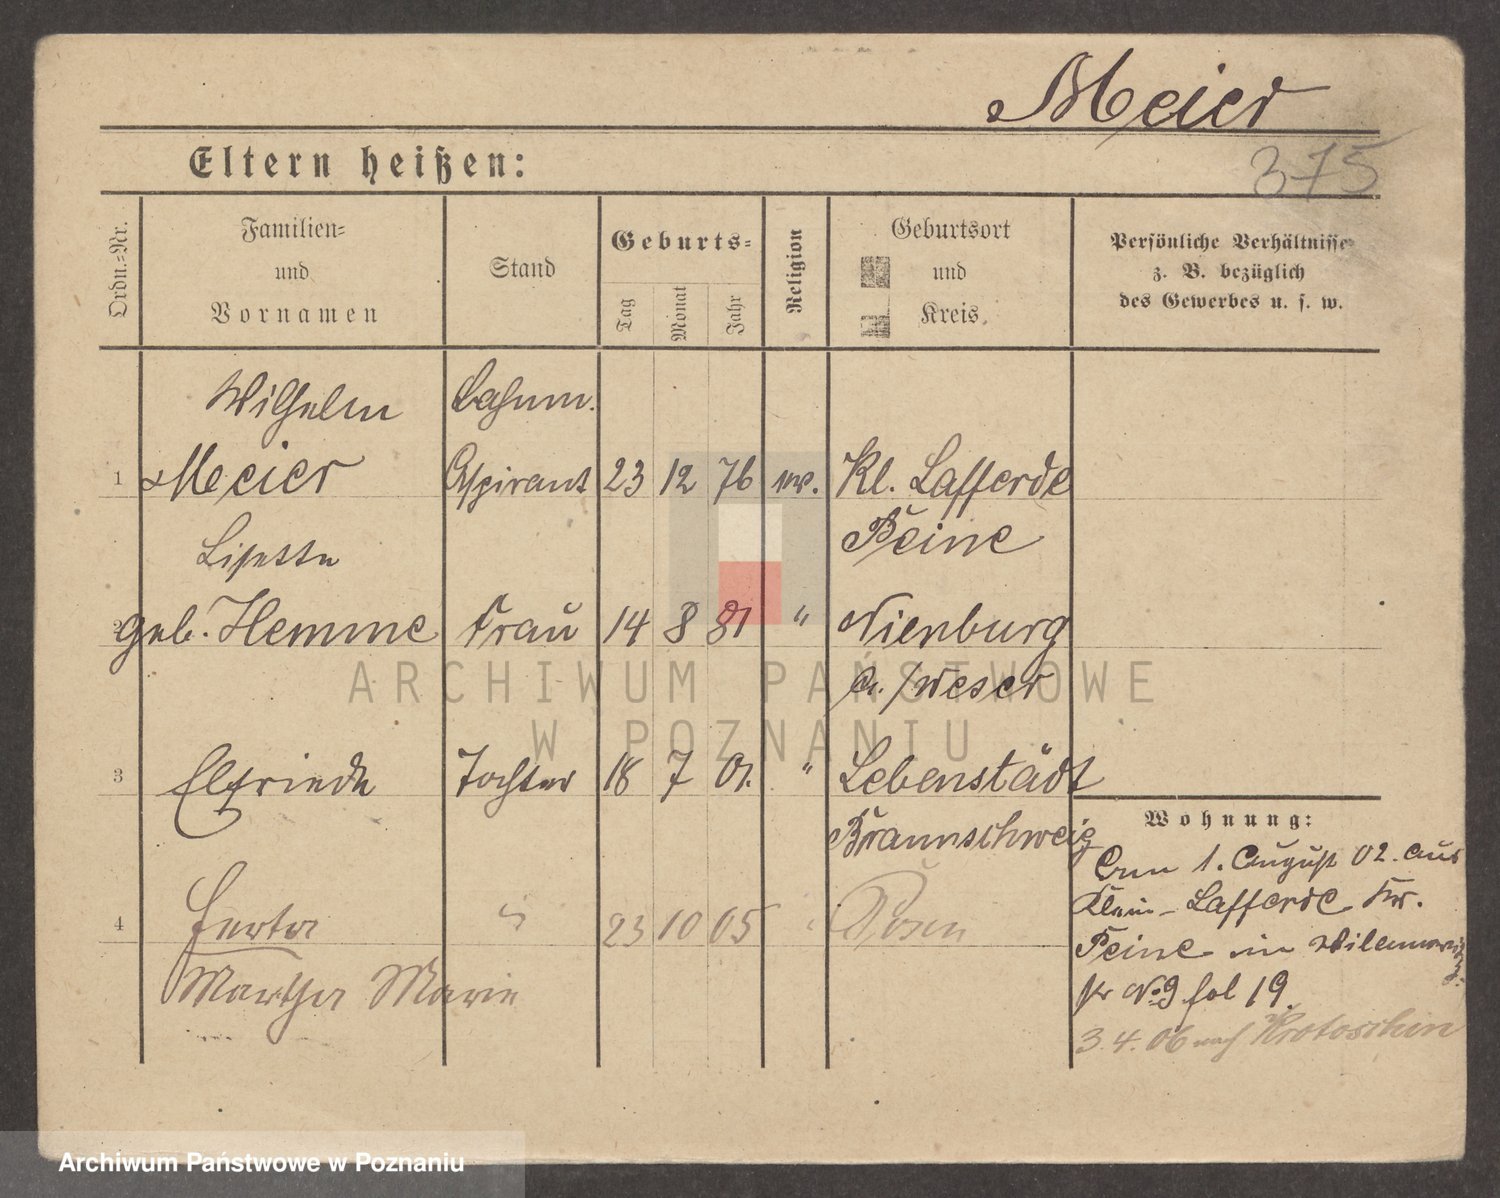 Meier
375
Eltern heißen:
Ordn.=Nr.
Familien=
und
Vornamen
Stand
Geburts=
Tag
Monat
Jahr
Religion
Geburtsort
und
Kreis
Persönliche Verhältnisse
z. B. bezüglich
des Gewerbes u. s. w.
Wilhelm
1 Meier Aspirant 23 12 76 Kl. Lafferde
Peine
Lisette
2 geb. Hemme Frau 14 8 81 " Nienburg
a./Weser
3 Elfriede Tochter 18 7 01. " Lebenstädt
Braunschweig
Wohnung:
Am 1. August 02. aus
Klein-Lafferde Kr.
Peine in
No 9 fol 19.
3.4.06 nach Krotoschin
4 Herta " 23 10 05 " Posen
Martha Marie
ARCHIWUM PAŃSTWOWE
W POZNANIU
Archiwum Państwowe w Poznaniu